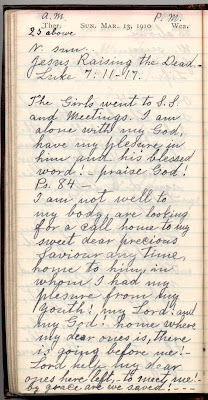 A.M. P.M.
Ther. SUN. MAR. 13, 1910 Wea.
25 above
N. sun.
Jesus Raising the Dead.
Luke 7:11-17.
The Girls went to S.S.
and Meetings. I am
alone with my God,
have my plesure in
him and his blessed
word! - praise God!
Ps. 84 -
I am not well to
my body, are looking
for a call home to my
sweet dear precious
Saviour any time,
home to him, in
whom I had my
plesure from my
youth! my Lord! and
my God. home where
my dear ones is, there
is going before me! -
Lord help my dear
ones here left, - to meet me! -
by grace are we saved! - - -